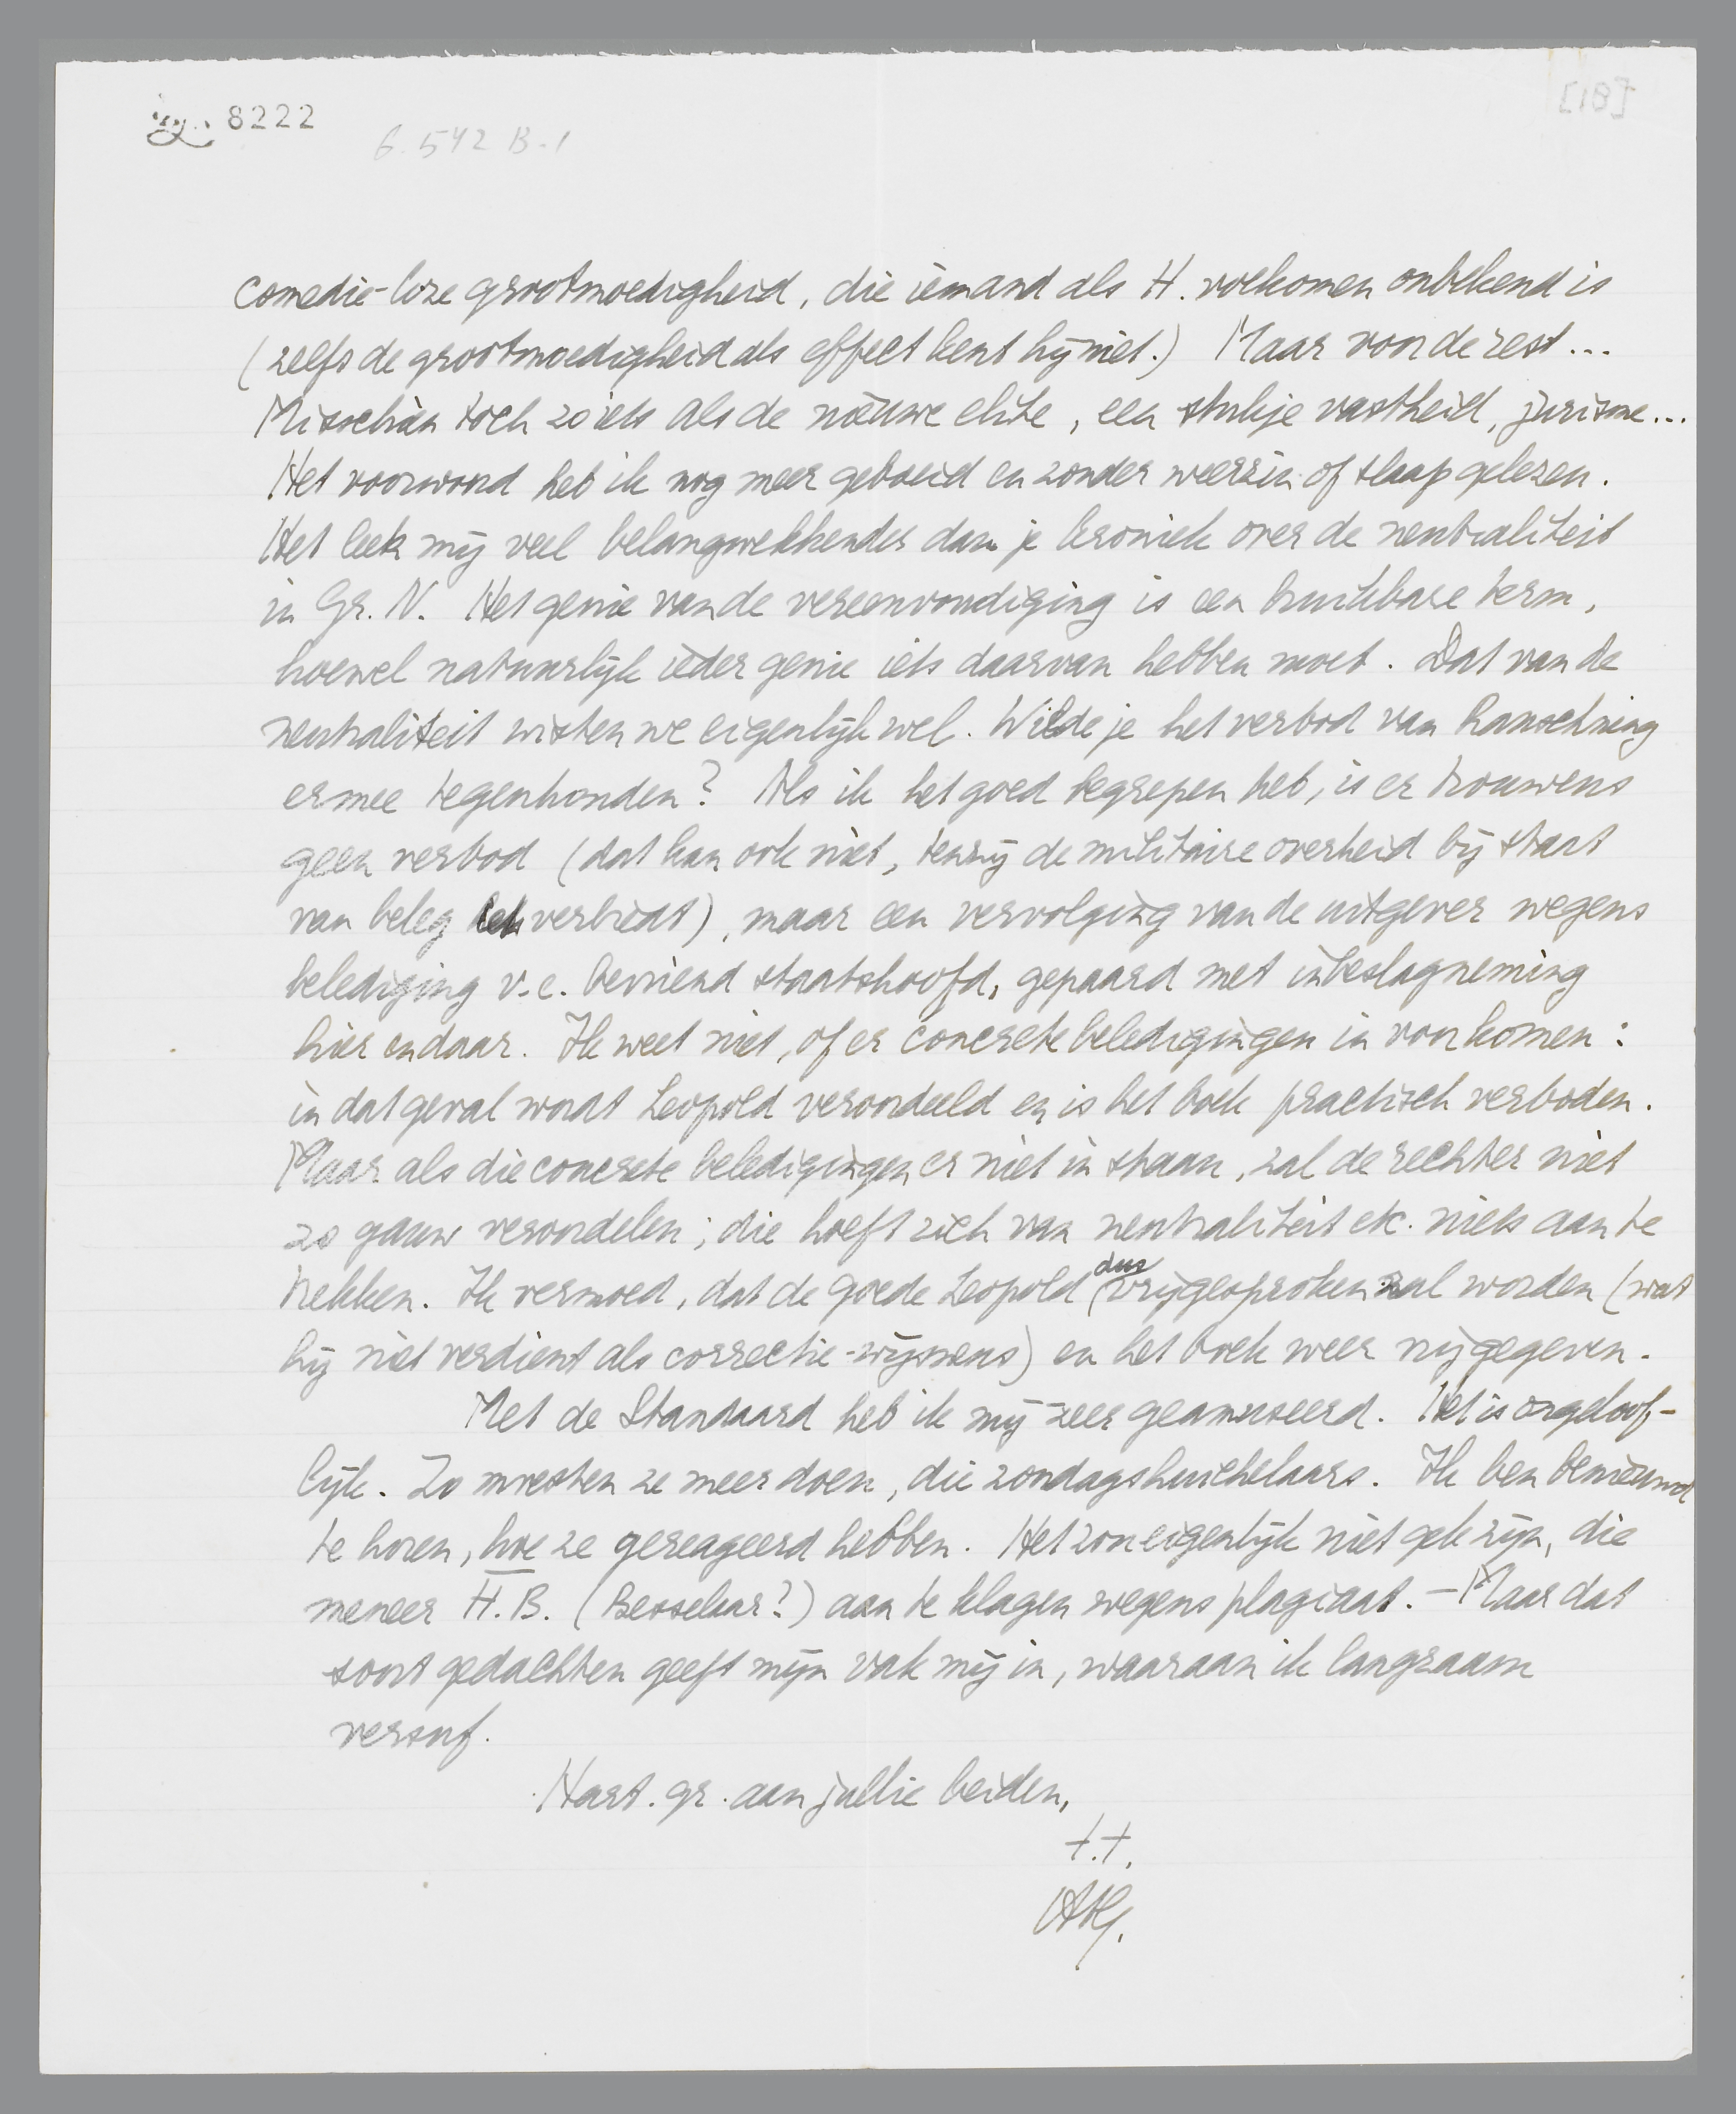 8222
G. 542 B-1
[18]
comedie-loze grootmoedigheid, die iemand als H. volkomen onbekend is
(zelfs de grootmoedigheid als effect kent hij niet.) Maar voor de rest ...
Misschien toch zoiets als de nieuwe elite, een stukje vastheid, jurisme...
Het voorwoord heb ik nog meer geboeid en zonder weerzin of slaap gelezen.
Het leek mij veel belangwekkender dan je kroniek over de neutraliteit
in Gr. N. Het genie van de vereenvoudiging is een bruikbare term,
hoewel natuurlijk ieder genie iets daarvan hebben moet. Dat van de
neutraliteit wisten we eigenlijk wel. Wilde je het verbod van Rauschning
ermee tegenhouden? Als ik het goed begrepen heb, is er trouwens
geen verbod (dat kan ook niet, tenzij de militaire overheid bij staat
van beleg het verbiedt), maar een vervolging van de uitgever wegens
belediging v.e. bevriend staatshoofd, gepaard met inbeslagneming
hier en daar. Ik weet niet, of er concrete beledigingen in voorkomen:
in dat geval wordt Leopold veroordeeld en is het boek practisch verboden.
Maar als die concrete beledigingen er niet in staan, zal de rechter niet
zo gauw veroordelen; die hoeft zich van neutraliteit etc. niets aan te
trekken. Ik vermoed, dat de goede Leopold dus vrijgesproken zal worden (wat
hij niet verdient als correctie-wijsneus) en het boek weer vrijgegeven.
Met de Standaard heb ik mij zeer geamuseerd. Het is ongeloof-
lijk. Zo moesten ze meer doen, die zondagshuichelaars. Ik ben benieuwd
te horen, hoe ze gereageerd hebben. Het zou eigenlijk niet gek zijn, die
meneer H.B. (Besselaar?) aan te klagen wegens plagiaat. – Maar dat
soort gedachten geeft mijn vak mij in, waaraan ik langzaam
versuf.
Hart. gr. aan jullie beiden,
t.t.